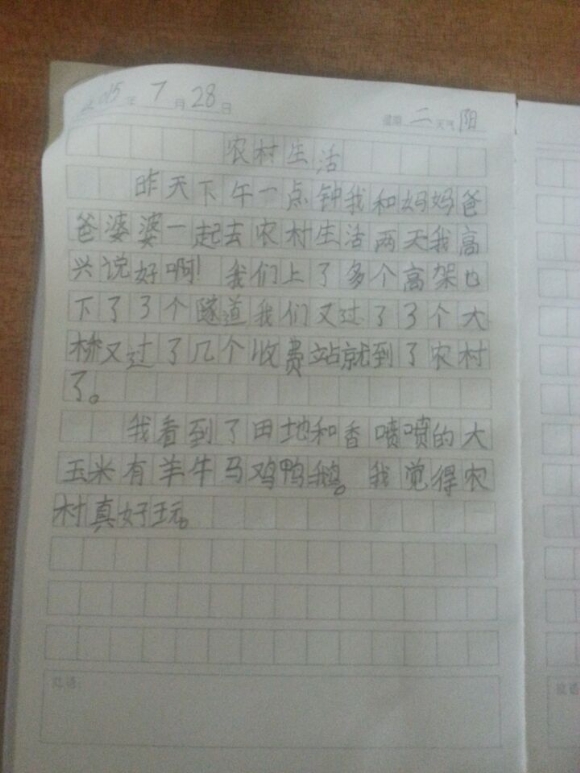 2015年7月28日 星期二天气阳
农村生活
昨天下午一点钟我和妈妈爸
爸婆婆一起去农村生活两天我高
兴说好啊!我们上了多个高架也
下了3个隧道我们又过了3个大
桥又过了几个收费站就到了农村
了。
我看到了田地和香喷喷的大
玉米有羊牛马鸡鸭鹅。我觉得农
村真好玩。